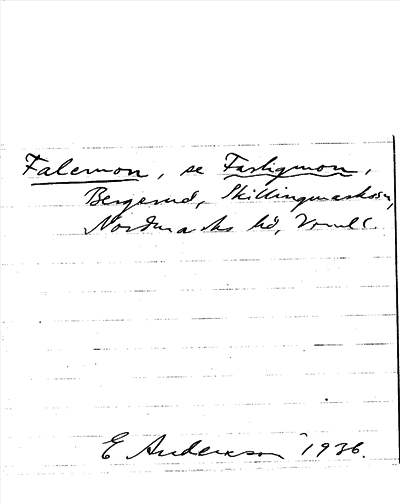 Falemon, se Farligmon,
Bergerud, Skillingmarks sn,
Nordmarks hd, Vrml.
E Anderxson 1936.